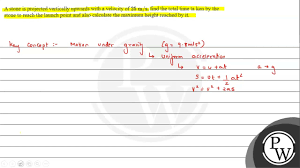 A stone is projected vertically upwards with a velocity of 25 m/s, find the total time is ken by the
stone to reach the launch point and also calculate the maximum height reached by it.
Key concept :- Motion under gravity (g = 9.8 m/s²)
↳ Uniform acceleration
↳ v = u + at a → g
S = ut + 1/2 at²
v² = u² + 2as
PW